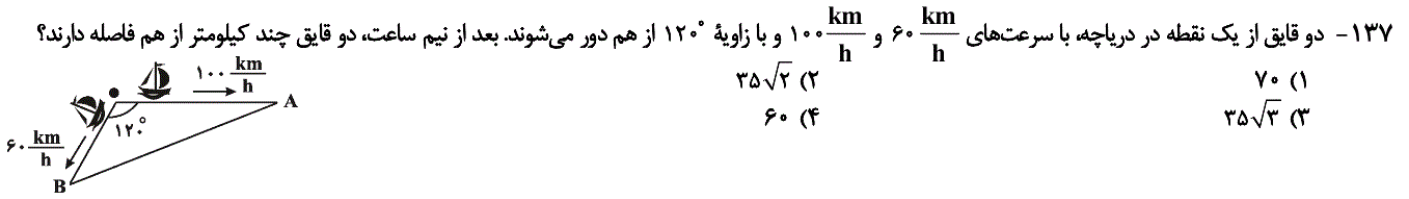 ۱۳۷- دو قایق از یک نقطه در دریاچه، با سرعت‌های ۶۰ km/h و ۱۰۰ km/h و با زاویهٔ ۱۲۰° از هم دور می‌شوند. بعد از نیم ساعت، دو قایق چند کیلومتر از هم فاصله دارند؟
۱) ۷۰
۲) ۳۵√۲
۳) ۳۵√۳
۴) ۶۰
۱۰۰ km/h
A
۱۲۰°
۶۰ km/h
B